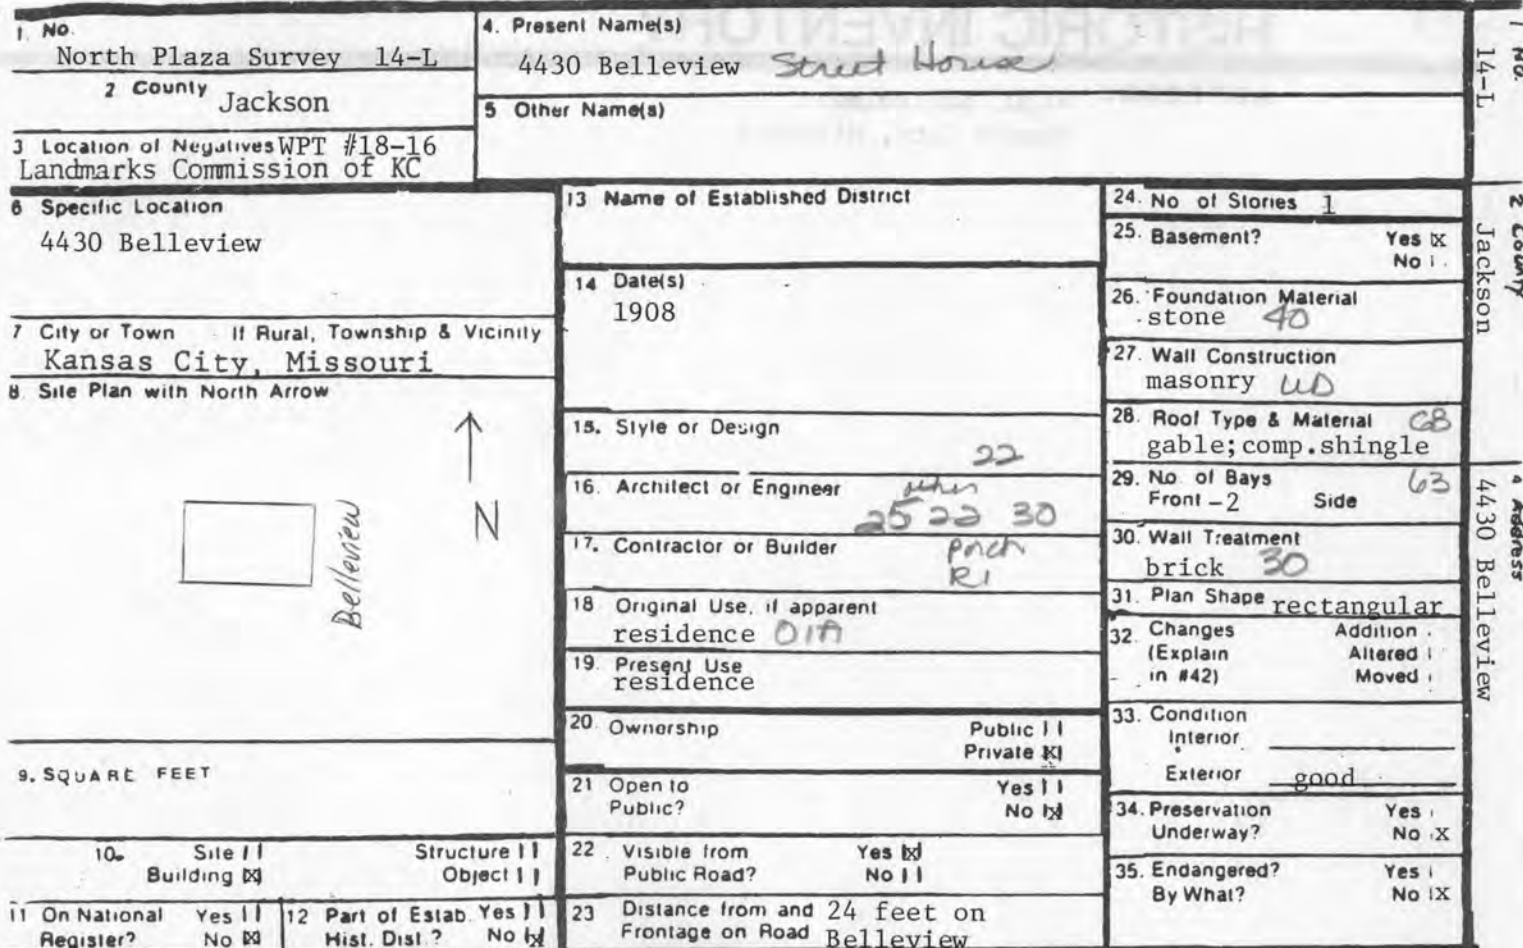 1. No.
North Plaza Survey 14-L
2 County
Jackson
3 Location of Negatives WPT #18-16
Landmarks Commission of KC
4. Present Name(s)
4430 Belleview Street House
5 Other Name(s)
6 Specific Location
4430 Belleview
7 City or Town If Rural, Township & Vicinity
Kansas City, Missouri
8. Site Plan with North Arrow
N
Belleview
9. SQUARE FEET
10. Site Structure
Building X Object
11 On National Yes
Register? No X
12 Part of Estab. Yes
Hist. Dist.? No X
13 Name of Established District
14 Date(s)
1908
15. Style or Design
22
16. Architect or Engineer other
25 22 30
17. Contractor or Builder Porch
R1
18 Original Use, if apparent
residence 01A
19. Present Use
residence
20. Ownership Public
Private X
21 Open to Yes
Public? No X
22. Visible from Yes X
Public Road? No
23 Distance from and 24 feet on
Frontage on Road Belleview
24. No of Stories 1
25. Basement? Yes X
No
26. Foundation Material
stone 40
27. Wall Construction
masonry UD
28. Roof Type & Material GB
gable; comp.shingle
29. No. of Bays 63
Front -2 Side
30. Wall Treatment
brick 30
31. Plan Shape rectangular
32. Changes Addition
(Explain Altered
in #42) Moved
33. Condition
Interior
Exterior good
34. Preservation Yes
Underway? No X
35. Endangered? Yes
By What? No X
1 No.
14-L
2 County
Jackson
4 Address
4430 Belleview